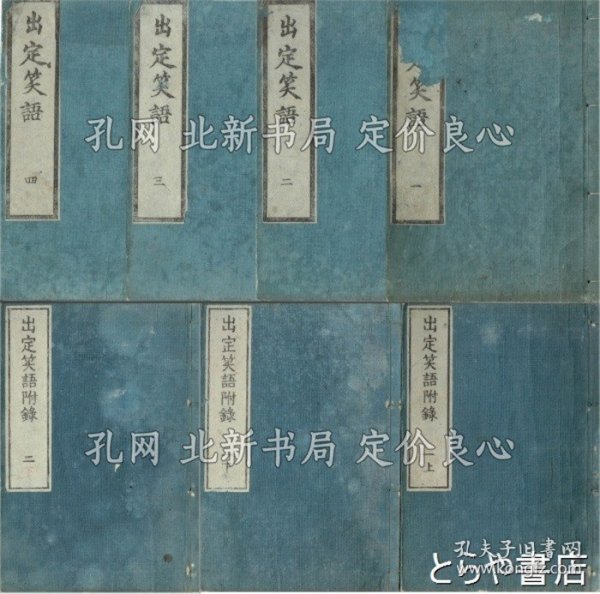 出定笑語
四
出定笑語
三
出定笑語
二
笑語
一
孔网 北新书局 定价良心
出定笑語附錄
二
出定笑語附錄
出定笑語附錄
上
孔网 北新书局 定价良心
孔夫子旧书网
www.kongfz.com
とらや書店